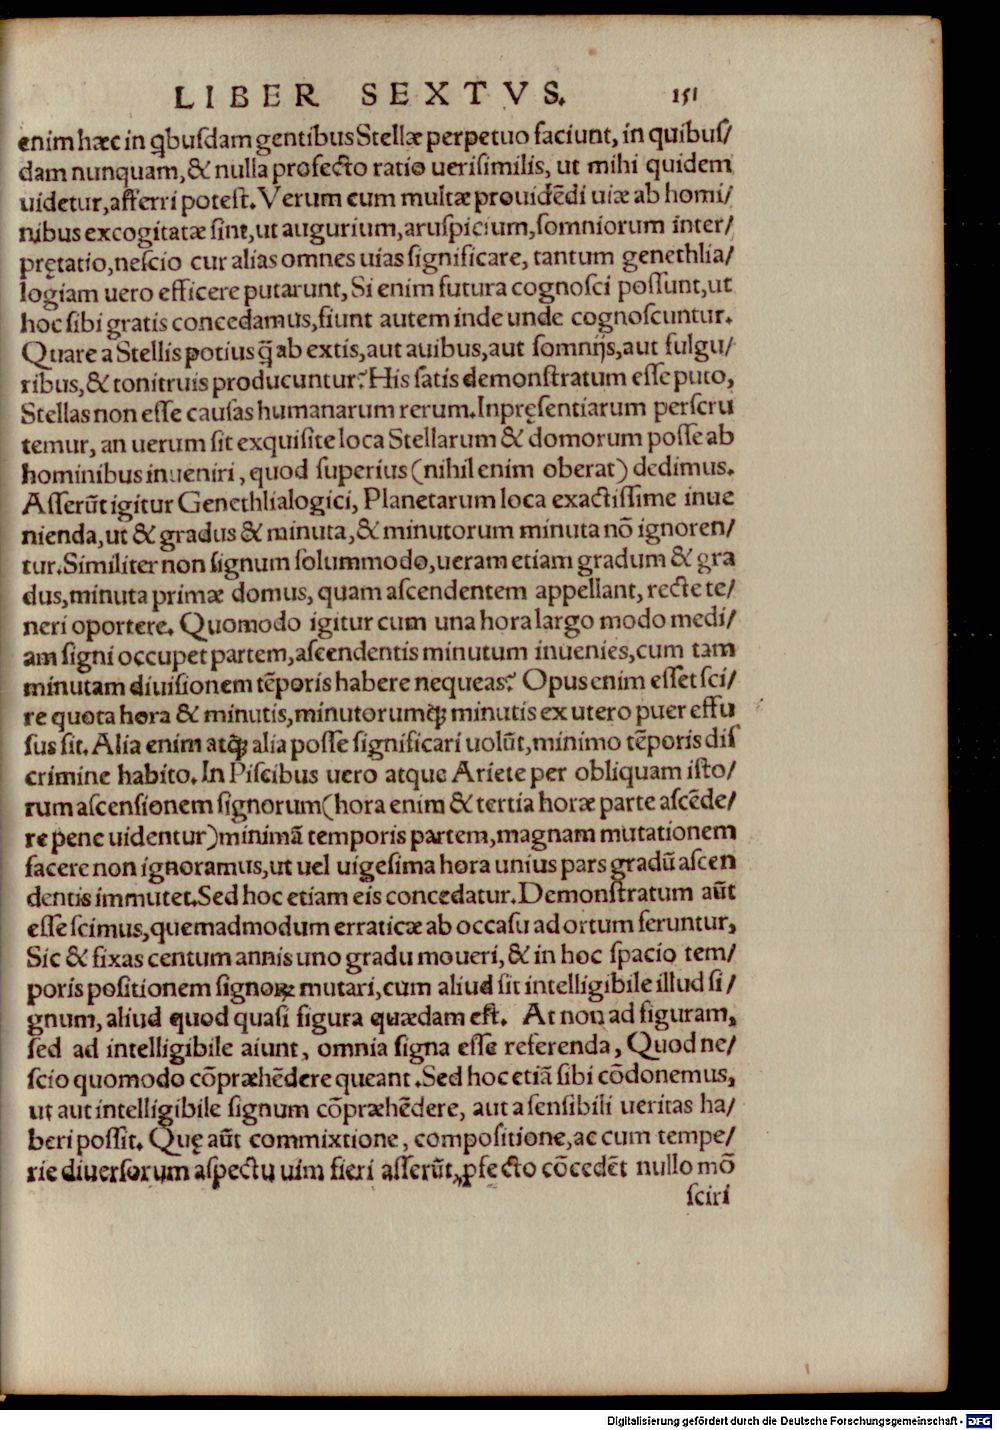 LIBER SEXTVS. 151
enim hæc in qbuſdam gentibus Stellæ perpetuo faciunt, in quibuſ/
dam nunquam, & nulla profecto ratio ueriſimilis, ut mihi quidem
uidetur, afferri poteſt. Verum cum multæ prouidẽdi uiæ ab homi/
nibus excogitatæ ſint, ut augurium, aruſpicium, ſomniorum inter/
pretatio, neſcio cur alias omnes uias ſignificare, tantum genethlia/
logiam uero efficere putarunt, Si enim futura cognoſci poſſunt, ut
hoc ſibi gratis concedamus, fiunt autem inde unde cognoſcuntur.
Quare a Stellis potius q̃ ab extis, aut auibus, aut ſomnijs, aut fulgu/
ribus, & tonitruis producuntur? His ſatis demonſtratum eſſe puto,
Stellas non eſſe cauſas humanarum rerum. Inpręſentiarum perſcru
temur, an uerum ſit exquiſite loca Stellarum & domorum poſſe ab
hominibus inueniri, quod ſuperius (nihil enim oberat) dedimus.
Aſſerũt igitur Genethlialogici, Planetarum loca exactiſſime inue
nienda, ut & gradus & minuta, & minutorum minuta nõ ignoren/
tur. Similiter non ſignum ſolummodo, ueram etiam gradum & gra
dus, minuta primæ domus, quam aſcendentem appellant, recte te/
neri oportere. Quomodo igitur cum una hora largo modo medi/
am ſigni occupet partem, aſcendentis minutum inuenies, cum tam
minutam diuiſionem tẽporis habere nequeas? Opus enim eſſet ſci/
re quota hora & minutis, minutorumq; minutis ex utero puer effu
ſus ſit. Alia enim atq; alia poſſe ſignificari uolũt, minimo tẽporis diſ
crimine habito. In Piſcibus uero atque Ariete per obliquam iſto/
rum aſcenſionem ſignorum (hora enim & tertia horæ parte aſcẽde/
re pene uidentur) minimã temporis partem, magnam mutationem
facere non ignoramus, ut uel uigeſima hora unius pars gradũ aſcen
dentis immutet. Sed hoc etiam eis concedatur. Demonſtratum aũt
eſſe ſcimus, quemadmodum erraticæ ab occaſu ad ortum feruntur,
Sic & fixas centum annis uno gradu moueri, & in hoc ſpacio tem/
poris poſitionem ſignoꝝ mutari, cum aliud ſit intelligibile illud ſi/
gnum, aliud quod quaſi figura quædam eſt. At non ad figuram,
ſed ad intelligibile aiunt, omnia ſigna eſſe referenda, Quod ne/
ſcio quomodo cõpræhẽdere queant. Sed hoc etiã ſibi cõdonemus,
ut aut intelligibile ſignum cõpræhẽdere, aut a ſenſibili ueritas ha/
beri poſſit. Quę aũt commixtione, compoſitione, ac cum tempe/
rie diuerſorum aſpectu uim fieri aſſerũt, ꝓfecto cõcedẽt nullo mõ
ſciri
Digitalisierung gefördert durch die Deutsche Forschungsgemeinschaft - DFG